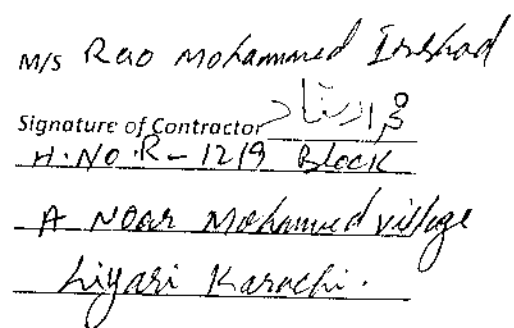 M/S Rao Mohammed Irshad
Signature of Contractor محمد ارشاد
H.NO.R-1219 Block
A Noor Mohammed village
Liyari Karachi.